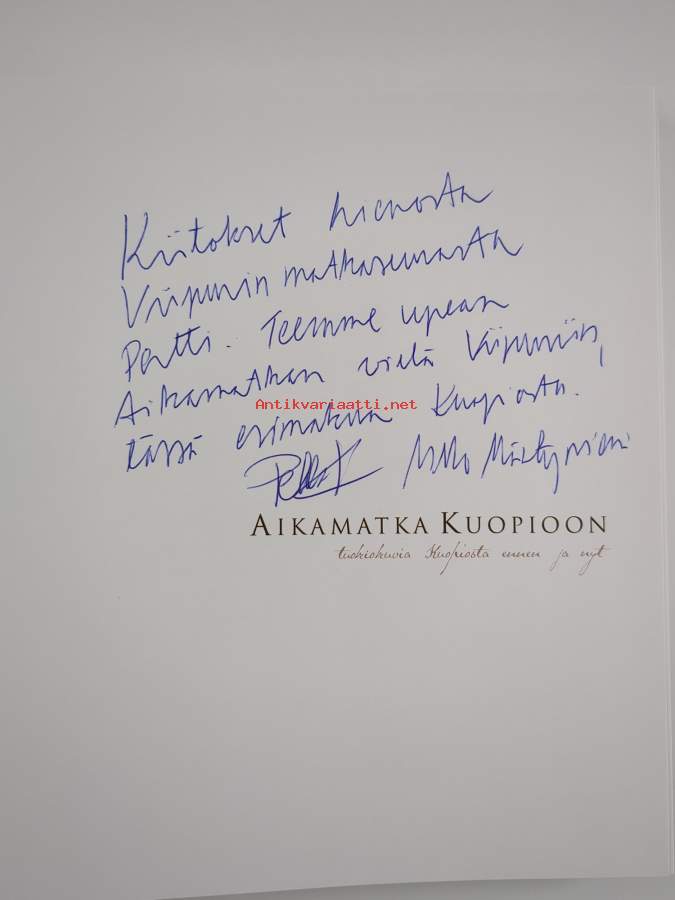 Kiitokset hienosta
Viipurin matkaseurasta
Pertti. Teemme upean
Aikamatkan vielä Viipuriin,
tässä esimakua Kuopiosta.
Antikvariaatti.net
AIKAMATKA KUOPIOON
tuokiokuvia Kuopiosta ennen ja nyt